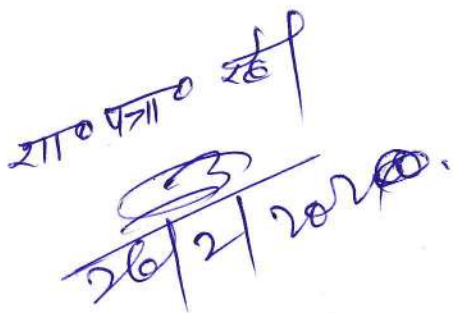 शा० पत्रा० रखें।
26/2/2020.